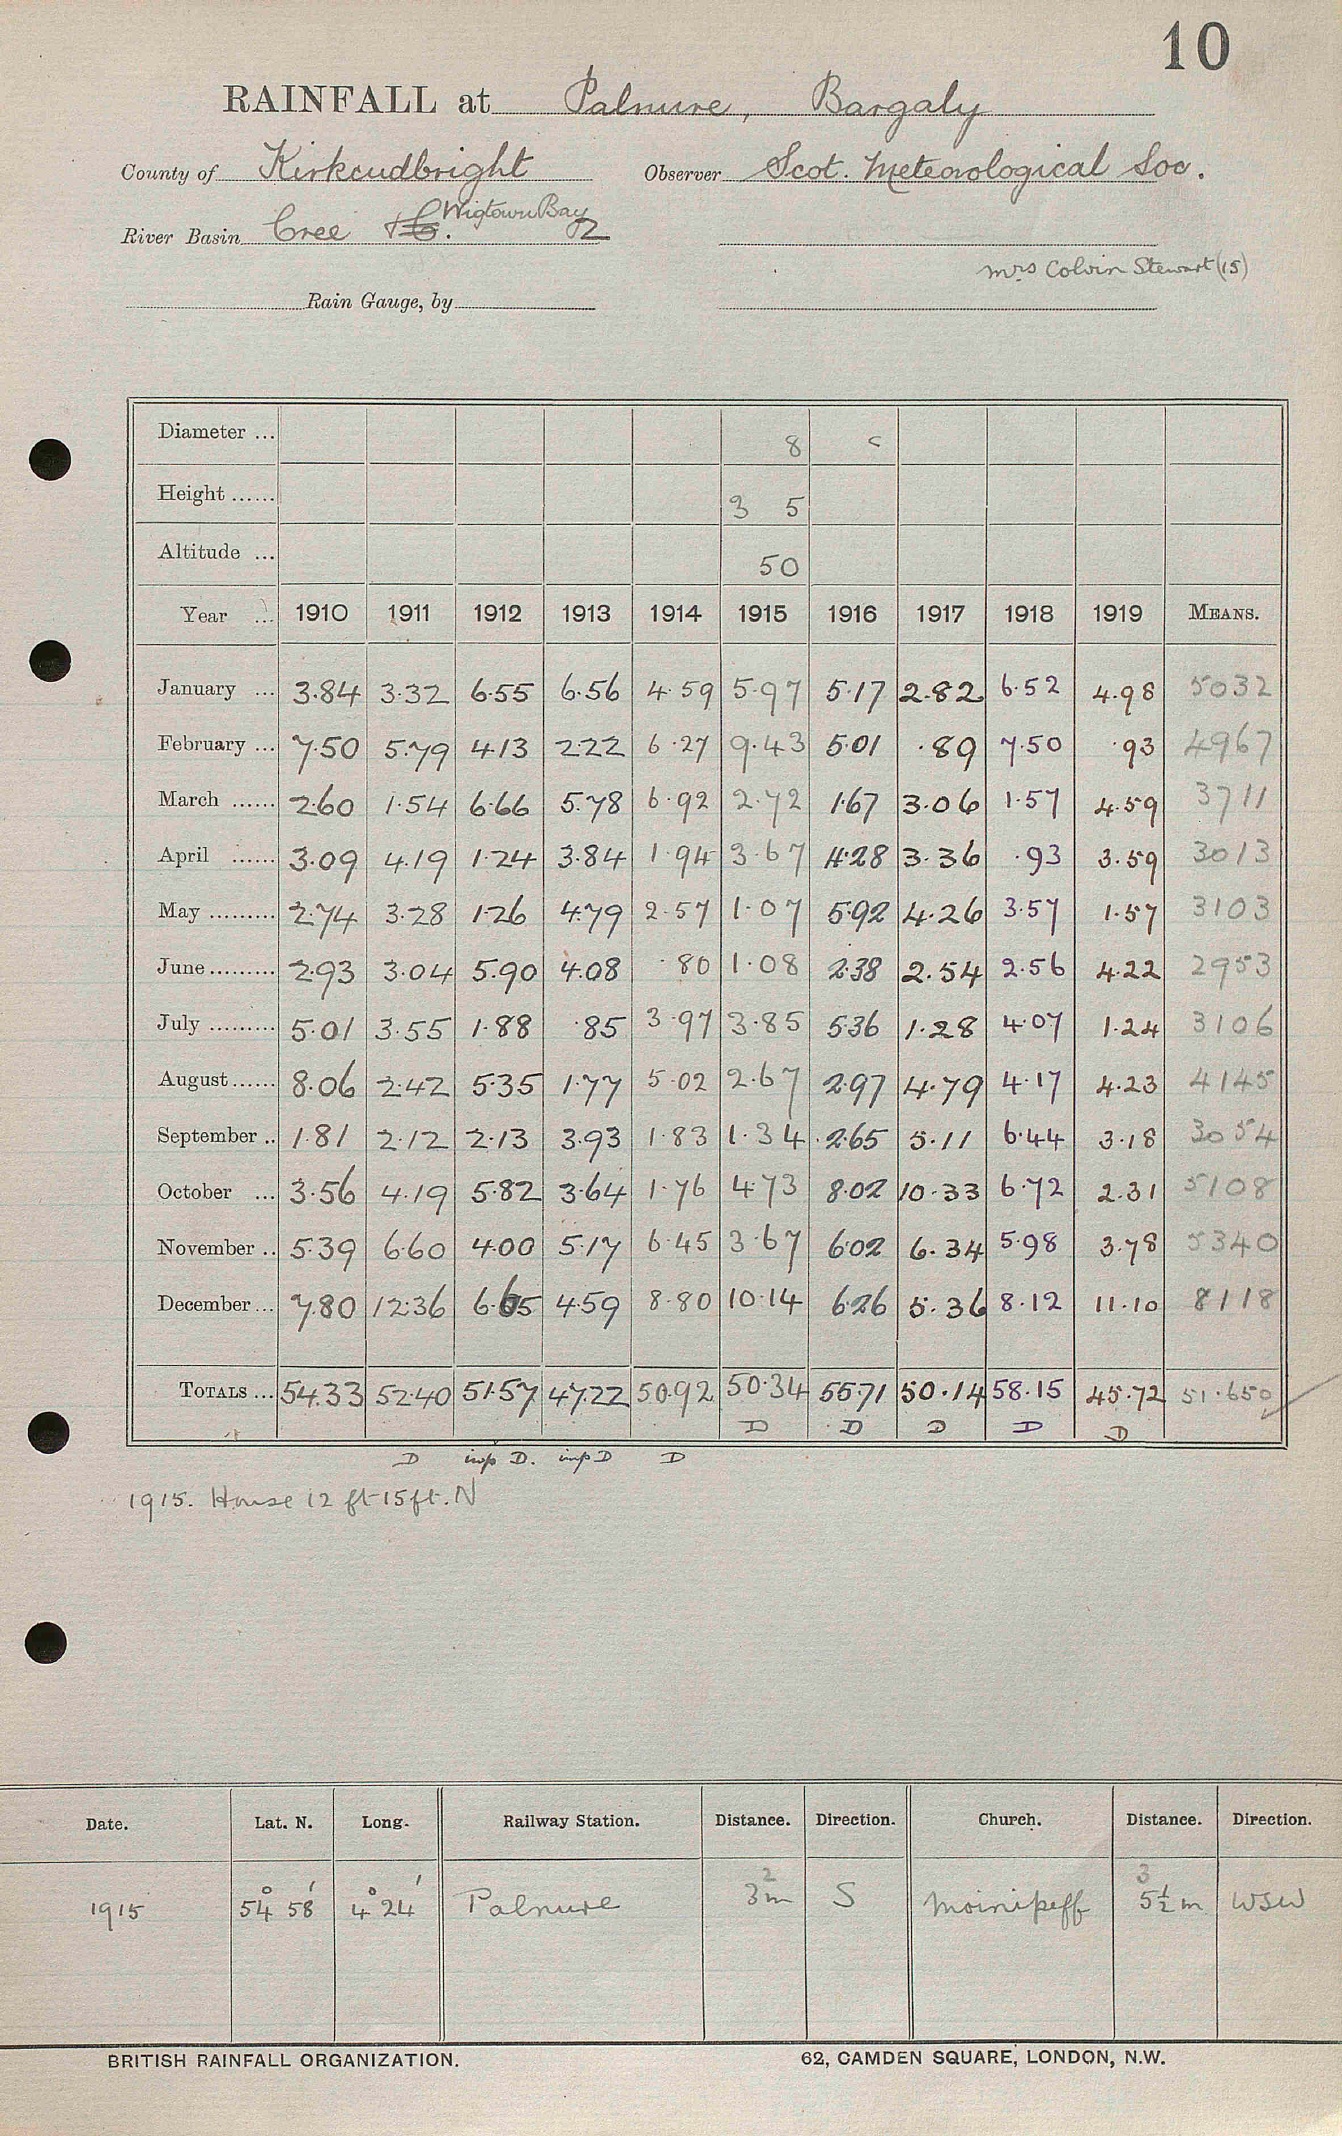 10
RAINFALL at Palnure, Bargaly
County of Kirkcudbright Observer Scot. Meteorological Soc.
River Basin Cree Wigtown Bay 2
Mrs Colvin Stewart (15)
Rain Gauge, by
Diameter ... 8
Height ...... 3 5
Altitude ... 50
Year ... 1910 1911 1912 1913 1914 1915 1916 1917 1918 1919 MEANS.
January ... 3.84 3.32 6.55 6.56 4.59 5.97 5.17 2.82 6.52 4.98 5032
February ... 7.50 5.79 4.13 2.22 6.27 9.43 5.01 .89 7.50 .93 4967
March ...... 2.60 1.54 6.66 5.78 6.92 2.72 1.67 3.06 1.57 4.59 3711
April ...... 3.09 4.19 1.24 3.84 1.94 3.67 4.28 3.36 .93 3.59 3013
May ......... 2.74 3.28 1.26 4.79 2.57 1.07 5.92 4.26 3.57 1.57 3103
June ......... 2.93 3.04 5.90 4.08 .80 1.08 2.38 2.54 2.56 4.22 2953
July ......... 5.01 3.55 1.88 .85 3.97 3.85 5.36 1.28 4.07 1.24 3106
August ...... 8.06 2.42 5.35 1.77 5.02 2.67 2.97 4.79 4.17 4.23 4145
September .. 1.81 2.12 2.13 3.93 1.83 1.34 2.65 5.11 6.44 3.18 3054
October ... 3.56 4.19 5.82 3.64 1.76 4.73 8.02 10.33 6.72 2.31 5108
November .. 5.39 6.60 4.00 5.17 6.45 3.67 6.02 6.34 5.98 3.78 5340
December ... 7.80 12.36 6.65 4.59 8.80 10.14 6.26 5.36 8.12 11.10 8118
TOTALS ... 54.33 52.40 51.57 47.22 50.92 50.34 55.71 50.14 58.15 45.72 51.650
D D D D D
D imp D. imp D D
1915. House 12 ft 15 ft. N
Date. Lat. N. Long. Railway Station. Distance. Direction. Church. Distance. Direction.
2 3
1915 54° 58' 4° 24' Palnure 3m S Moinipeff 5½ m WSW
BRITISH RAINFALL ORGANIZATION. 62, CAMDEN SQUARE, LONDON, N.W.